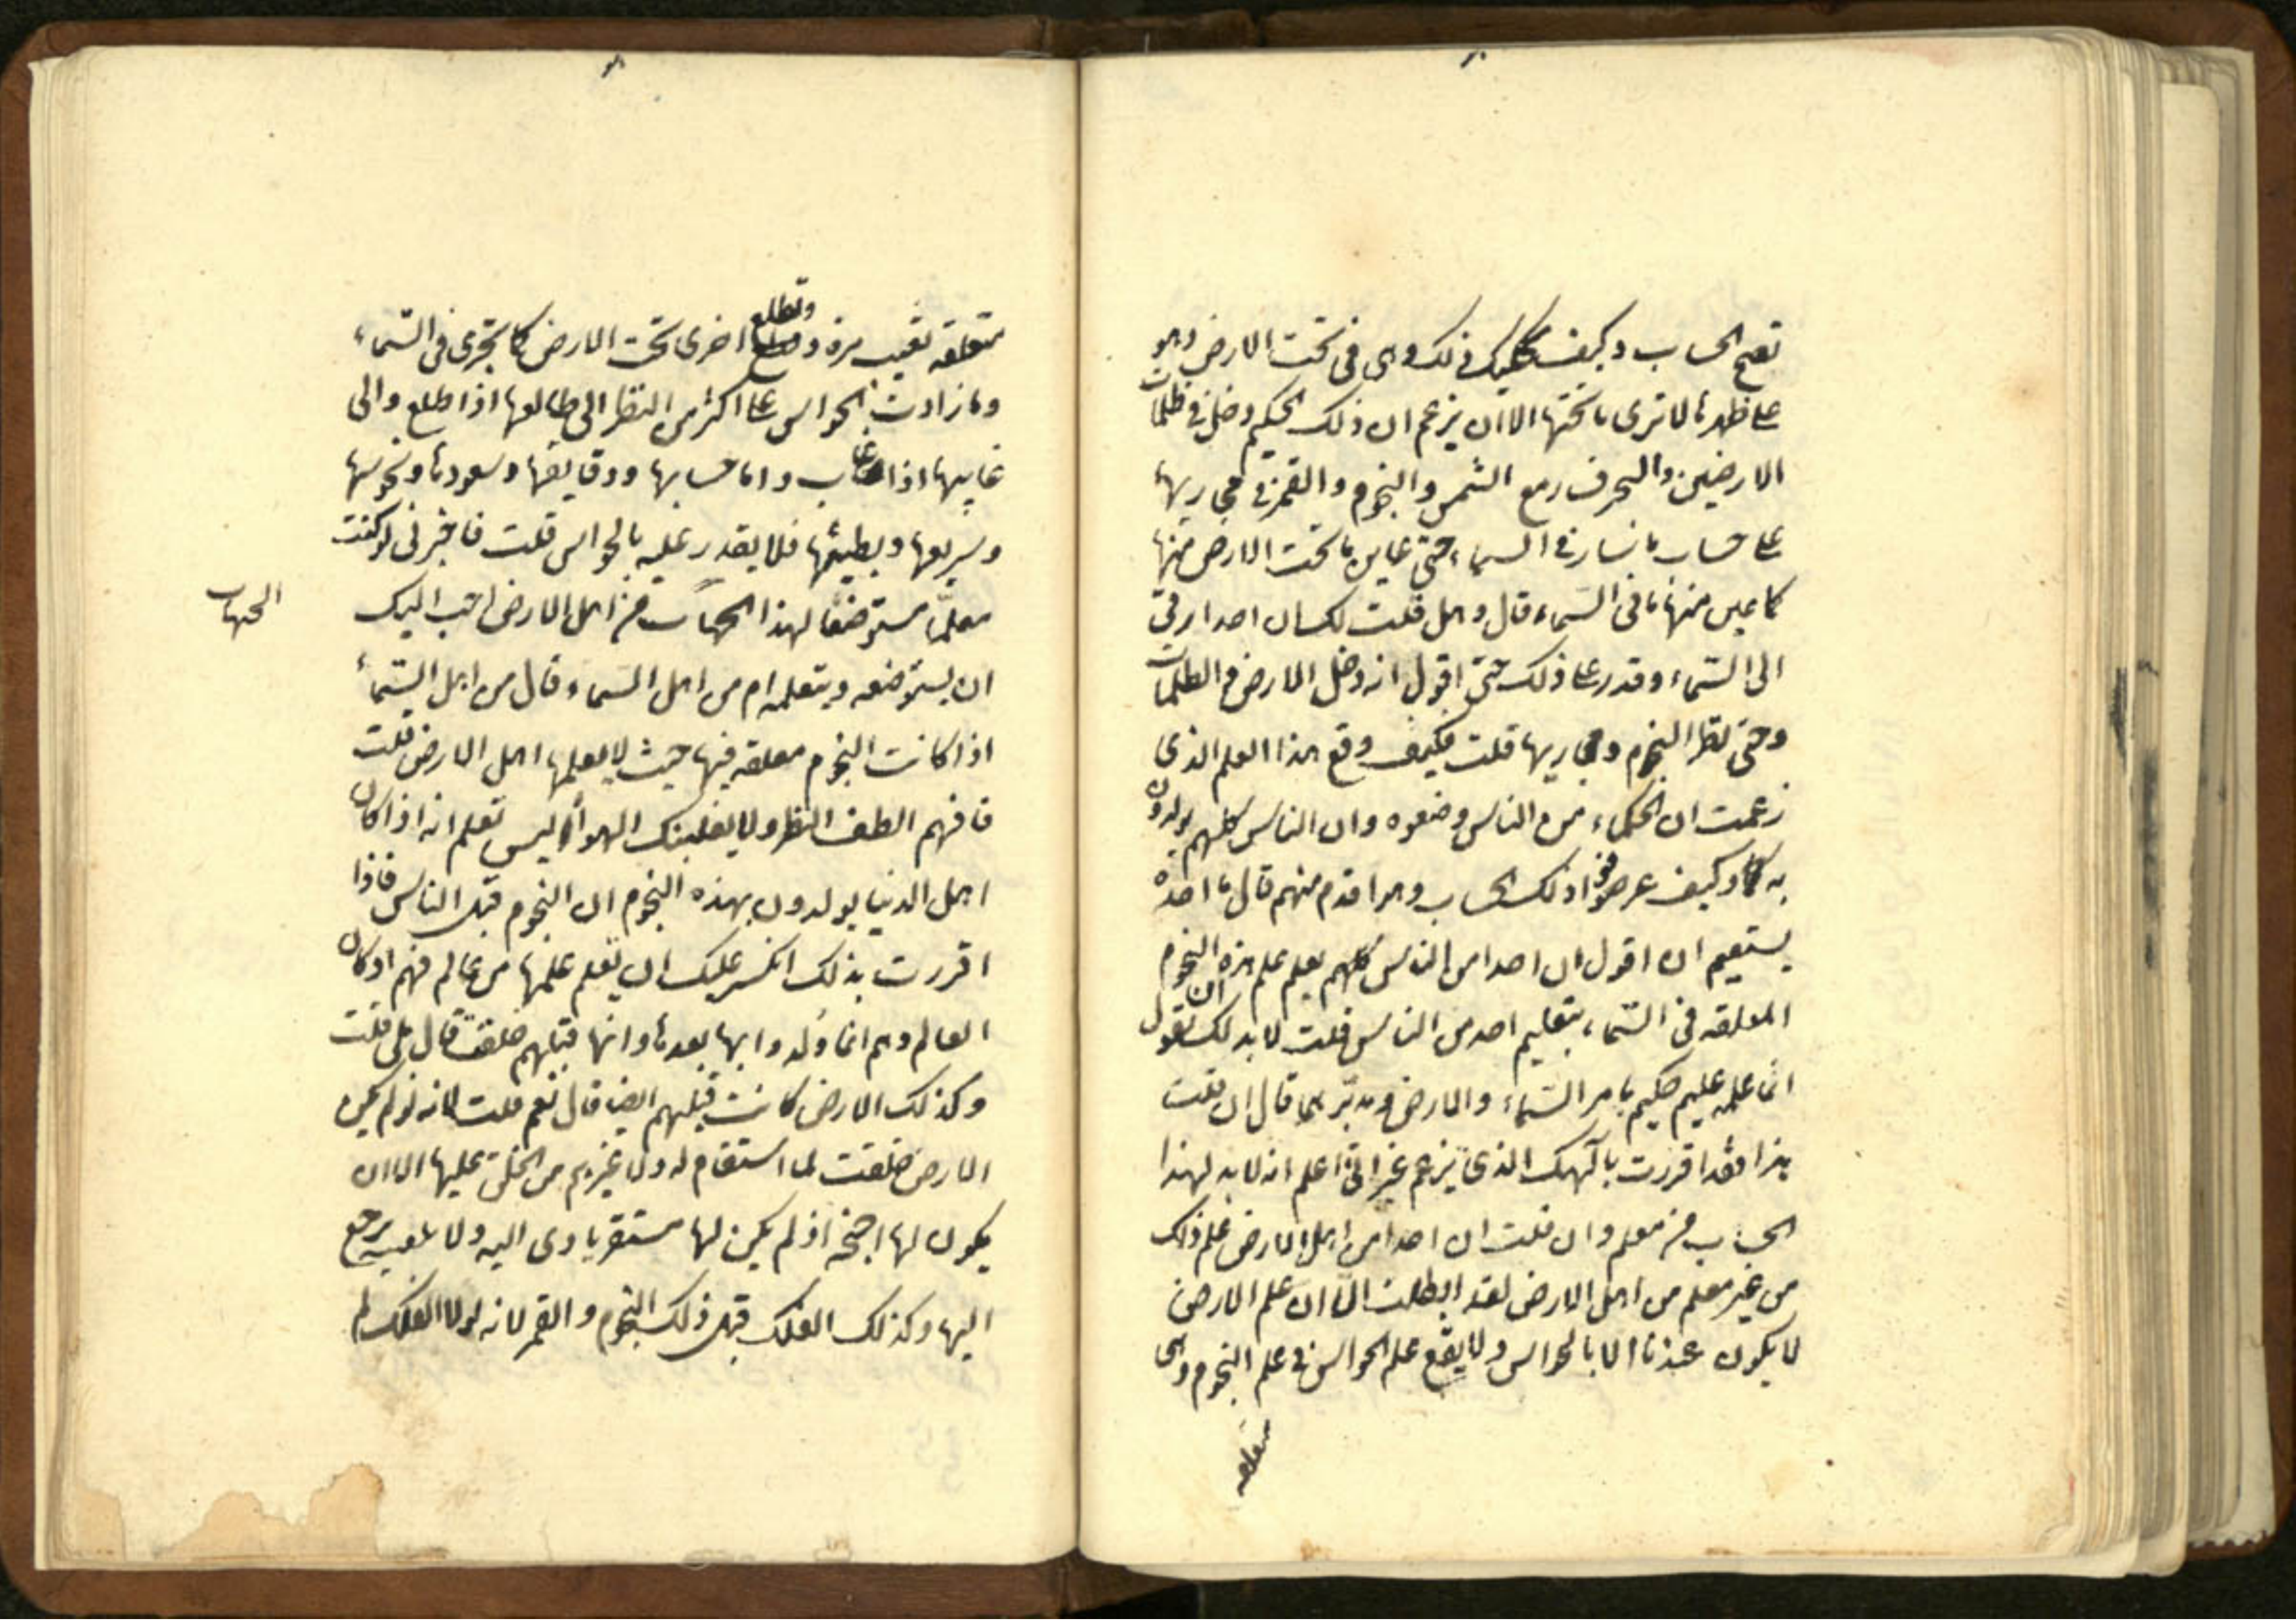 تصح الحساب وكيف بذلك وهي في تحت الارض وهو
على ظهرها لا ترى ما تحتها الا ان يزعم ان ذلك الحكيم دخل في ظلمات
الارضين والبحر فسار مع الشمس والنجوم والقمر في مجاريها
على حساب ما سار في السماء حتى عاين ما تحت الارض منها
كما عاين منها ما في السماء قال وهل قلت لك ان احدا رقى
الى السماء وقدر على ذلك حتى اقول انه دخل الارض والظلمات
وحتى نظر النجوم ومجاريها قلت فكيف وقع هذا العلم الذي
زعمت ان الحكماء من الناس وضعوه وان الناس كلهم يولدون
به وكيف عرفوا ذلك الحساب وهو اقدم منهم قال ما اجده
يستقيم ان اقول ان احدا من الناس كلهم يعلم علم هذه النجوم
المعلقه في السماء بتعليم احد من الناس قلت لا بد لك ان تقول
انما علمه عليم حكيم بامر السماء والارض ومدبرهما قال ان قلت
هذا فقد اقررت بالهك الذي يزعم غير اني اعلم انه لا بد لهذا
الحساب من معلم وان قلت ان احدا من اهل الارض علم ذلك
من غير معلم من اهل الارض لقد ابطلت الا ان علم الارض
لا يكون عندنا الا بالحواس ولا يقع علم الحواس في علم النجوم وهي
معلقه
معلقه تغيب مره وتطلع اخرى تحت الارض كما تجرى في السماء
وما زادت الحواس على اكثر من النظر الى طالعها اذا طلع والى
غايبها اذا غاب واما حسابها ودقايقها وسعودها ونحوسها
وسريعها وبطيئها فلا يقدر عليه بالحواس قلت فاخبرني لو كنت
معلما مستوضفا لهذا الحساب من اهل الارض احب اليك
الحساب
ان يستوضفه ويتعلمه ام من اهل السماء قال من اهل السماء
اذا كانت النجوم معلقه فيها حيث لا يعلمها اهل الارض قلت
فافهم الطف النظر ولا يغلبنك الهوا اليس تعلم انه اذا كان
اهل الدنيا يولدون بهذه النجوم ان النجوم قبل الناس فاذا
اقررت بذلك انكسر عليك ان تعلم علمها من عالم منهم اذ كان
العالم وهم انما ولدوا بها بعدها وانها قبلهم خلقت قال بلى قلت
وكذلك الارض كانت قبلهم ايضا قال نعم قلت لانه لو لم يكن
الارض خلقت لما استقام له ولا غيرهم من الخلق عليها الا ان
يكون لها اجنحة اذ لم يكن لها مستقر ياوى اليه ولا يرجع
اليها وكذلك الفلك قبل ذلك النجوم والقمر لانه لولا الفلك لم